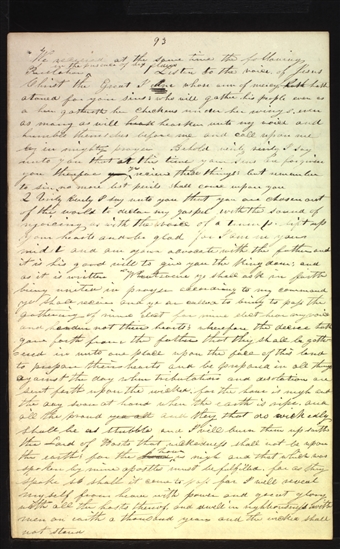 93
"We received at the same time the following
in the presence of six elders
Revelation" Listen to the voice of Jesus
Christ the Great I am whose arm of mercy hath
atoned for your sins; who will gather his people even as
a hen gathereth her chickens under her wings, even
as many as will hearken unto my voice and
humble themselves before me and call upon me
in mighty prayer Behold verily verily I say
unto you that at this time your sins be forgiven
you therefore ye receive these things: but remember
to sin no more lest perils shall come upon you
2 Verily Verily I say unto you that you are chosen out
of the world to declare my gospel with the sound of
rejoicing, as with the voice of a trump: lift up
your hearts and be glad for I am in your
midst and am your advocate with the father and
it is his good will to give you the Kingdom; and
as it is written Whatsoever ye shall ask in faith
being united in prayer according to my command
ye shall receive and ye are called to bring to pass the
gathering of mine elect for mine elect hear my voice
and harden not their hearts: wherefore, the decree hath
gone forth from the father that they shall be gathe-
red in unto one place upon the face of this land
to prepare their hearts and be prepared in all things
against the day when tribulation and desolation are
sent forth upon the wicked. for the hour is nigh and
the day soon at hand when the earth is ripe: and
all the proud and they that do wickedly
shall be as stubble and I will burn them up saith
the Lord of Hosts that wickedness shall not be upon
the earth: for the hour is nigh and that which was
spoken by mine apostles must be fulfilled. for as they
spoke so shall it come to pass for I will reveal
myself from heaven with power and great glory
with all the hosts thereof and dwell in righteousness with
men on earth a thousand years and the wicked shall
not stand